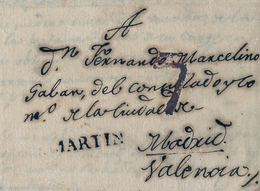 A
Dn. Fernando Marcelino
Gaban, del consulado y co
mo. de la Ciudad de
MARTIN Madrid
Valencia